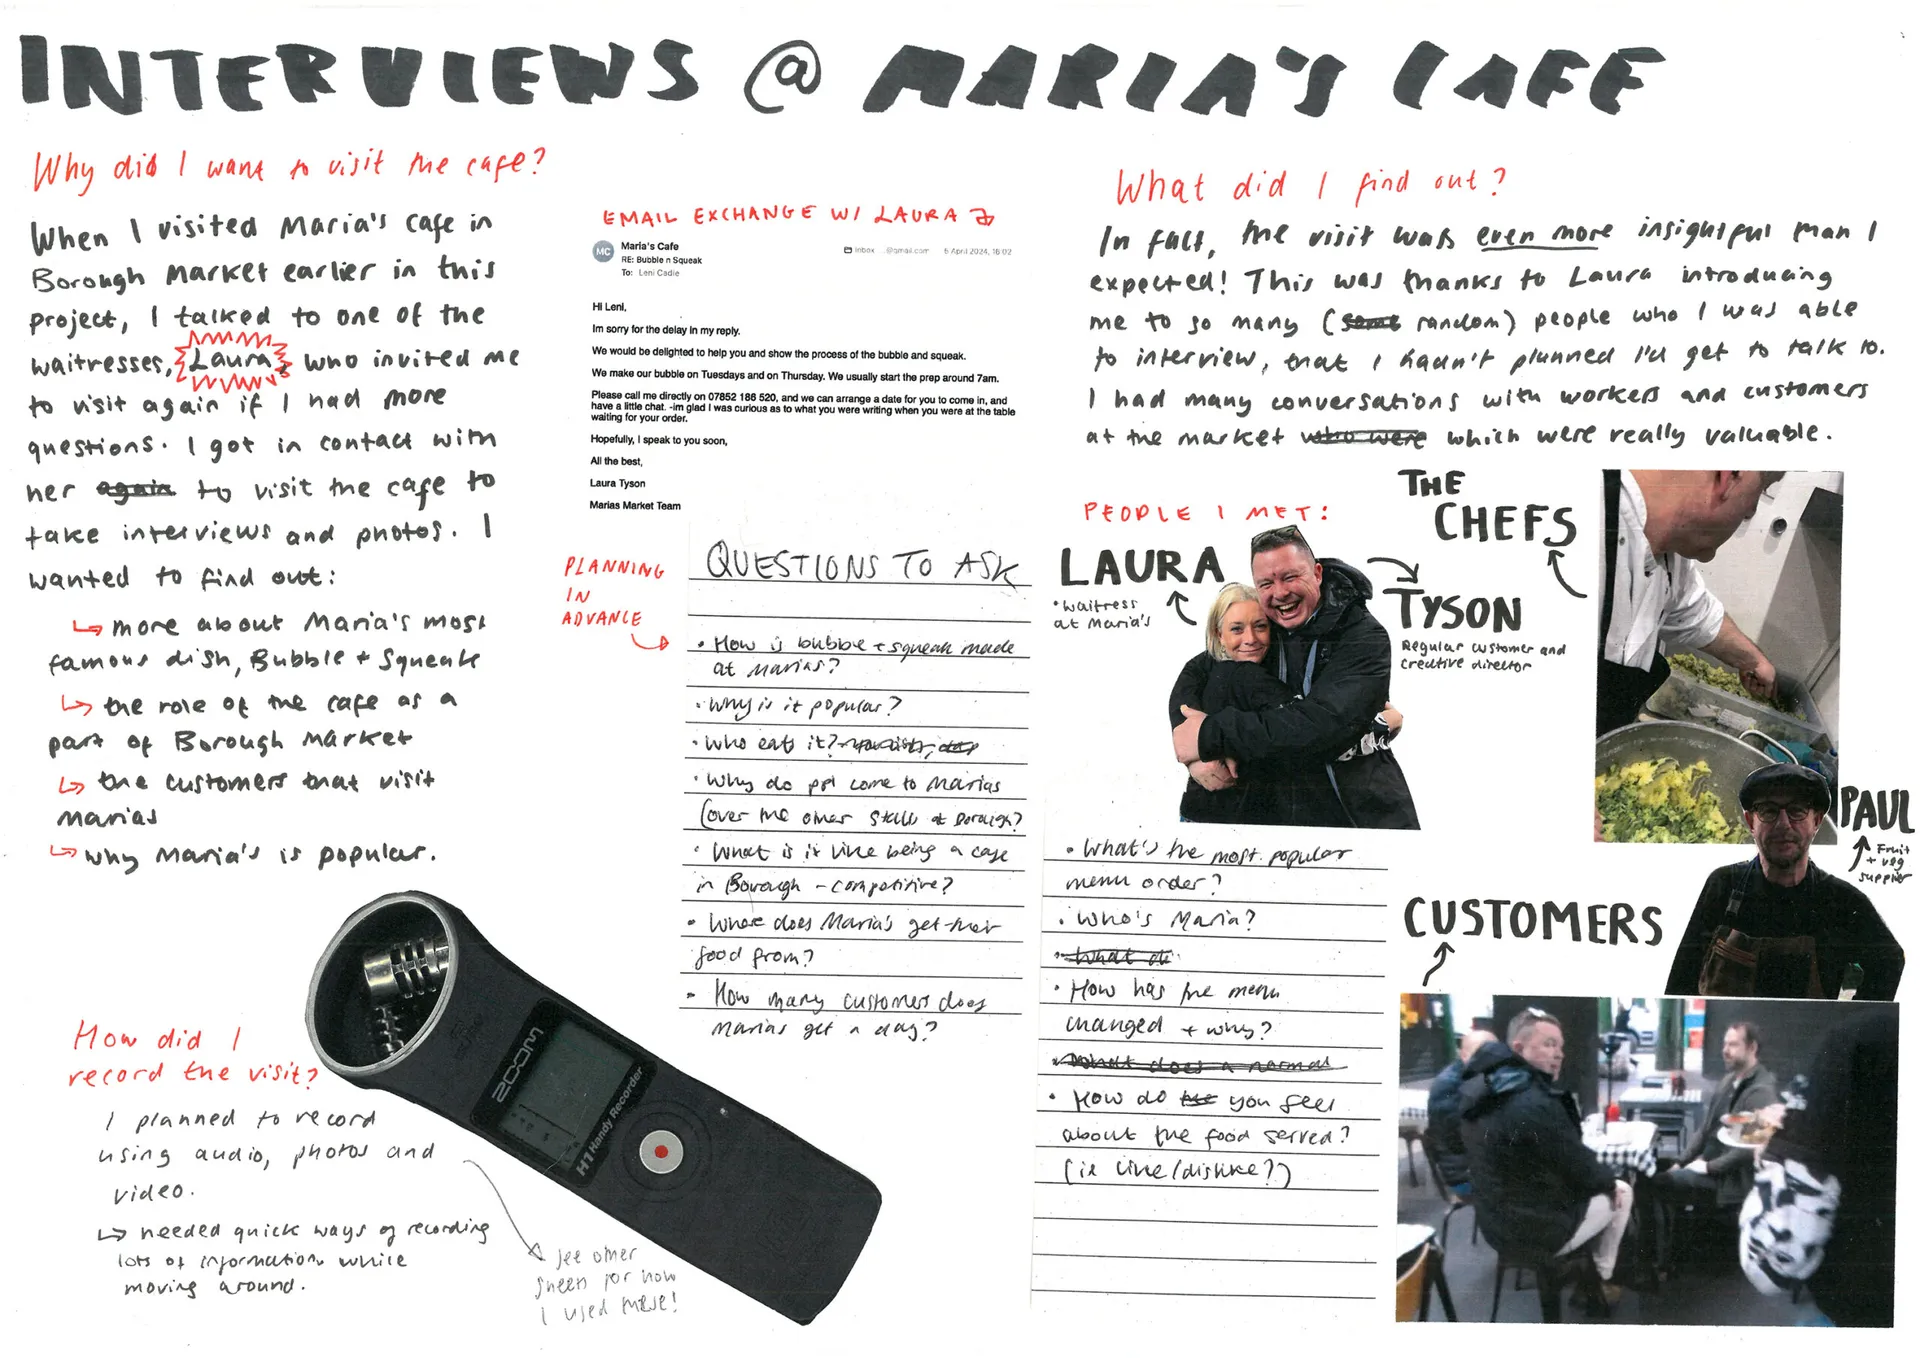 INTERVIEWS @ MARIA'S CAFE
Why did I want to visit the cafe?
When I visited Maria's cafe in
Borough Market earlier in this
project, I talked to one of the
waitresses, Laura, who invited me
to visit again if I had more
questions. I got in contact with
her again to visit the cafe to
take interviews and photos. I
wanted to find out:
↳ more about Maria's most
famous dish, Bubble + Squeak
↳ the role of the cafe as a
part of Borough Market
↳ the customers that visit
marias
↳ why Maria's is popular.
How did I
record the visit?
I planned to record
using audio, photos and
video.
↳ needed quick ways of recording
lots of information while
moving around.
see other
sheets for how
I used these!
ZOOM
H1 Handy Recorder
EMAIL EXCHANGE W/ LAURA
MC
Maria's Cafe
RE: Bubble n Squeak
To: Leni Cadie
Inbox ...@gmail.com 5 April 2024, 16:02
Hi Leni,
Im sorry for the delay in my reply.
We would be delighted to help you and show the process of the bubble and squeak.
We make our bubble on Tuesdays and on Thursday. We usually start the prep around 7am.
Please call me directly on 07852 186 520, and we can arrange a date for you to come in, and
have a little chat. -im glad I was curious as to what you were writing when you were at the table
waiting for your order.
Hopefully, I speak to you soon,
All the best,
Laura Tyson
Marias Market Team
PLANNING
IN
ADVANCE
QUESTIONS TO ASK
• How is bubble + squeak made
at marias?
• Why is it popular?
• Who eats it?
• Why do ppl come to Marias
(over the other stalls at Borough?
• What is it like being a cafe
in Borough - competitive?
• Where does Maria's get their
food from?
• How many customers does
marias get a day?
• What's the most popular
menu order?
• Who's Maria?
• What do
• How has the menu
changed + why?
• What does a normal
• How do you feel
about the food served?
(ie like/dislike?)
What did I find out?
In fact, the visit was even more insightful than I
expected! This was thanks to Laura introducing
me to so many (some random) people who I was able
to interview, that I hadn't planned I'd get to talk to.
I had many conversations with workers and customers
at the market who were which were really valuable.
PEOPLE I MET:
LAURA
• waitress
at Maria's
TYSON
Regular customer and
creative director
THE
CHEFS
PAUL
Fruit
+ veg
supplier
CUSTOMERS